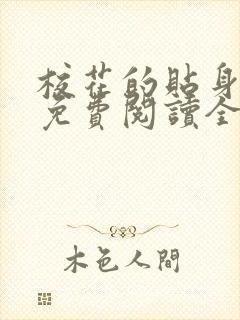 校花的貼身
免費閱讀全
木色人間